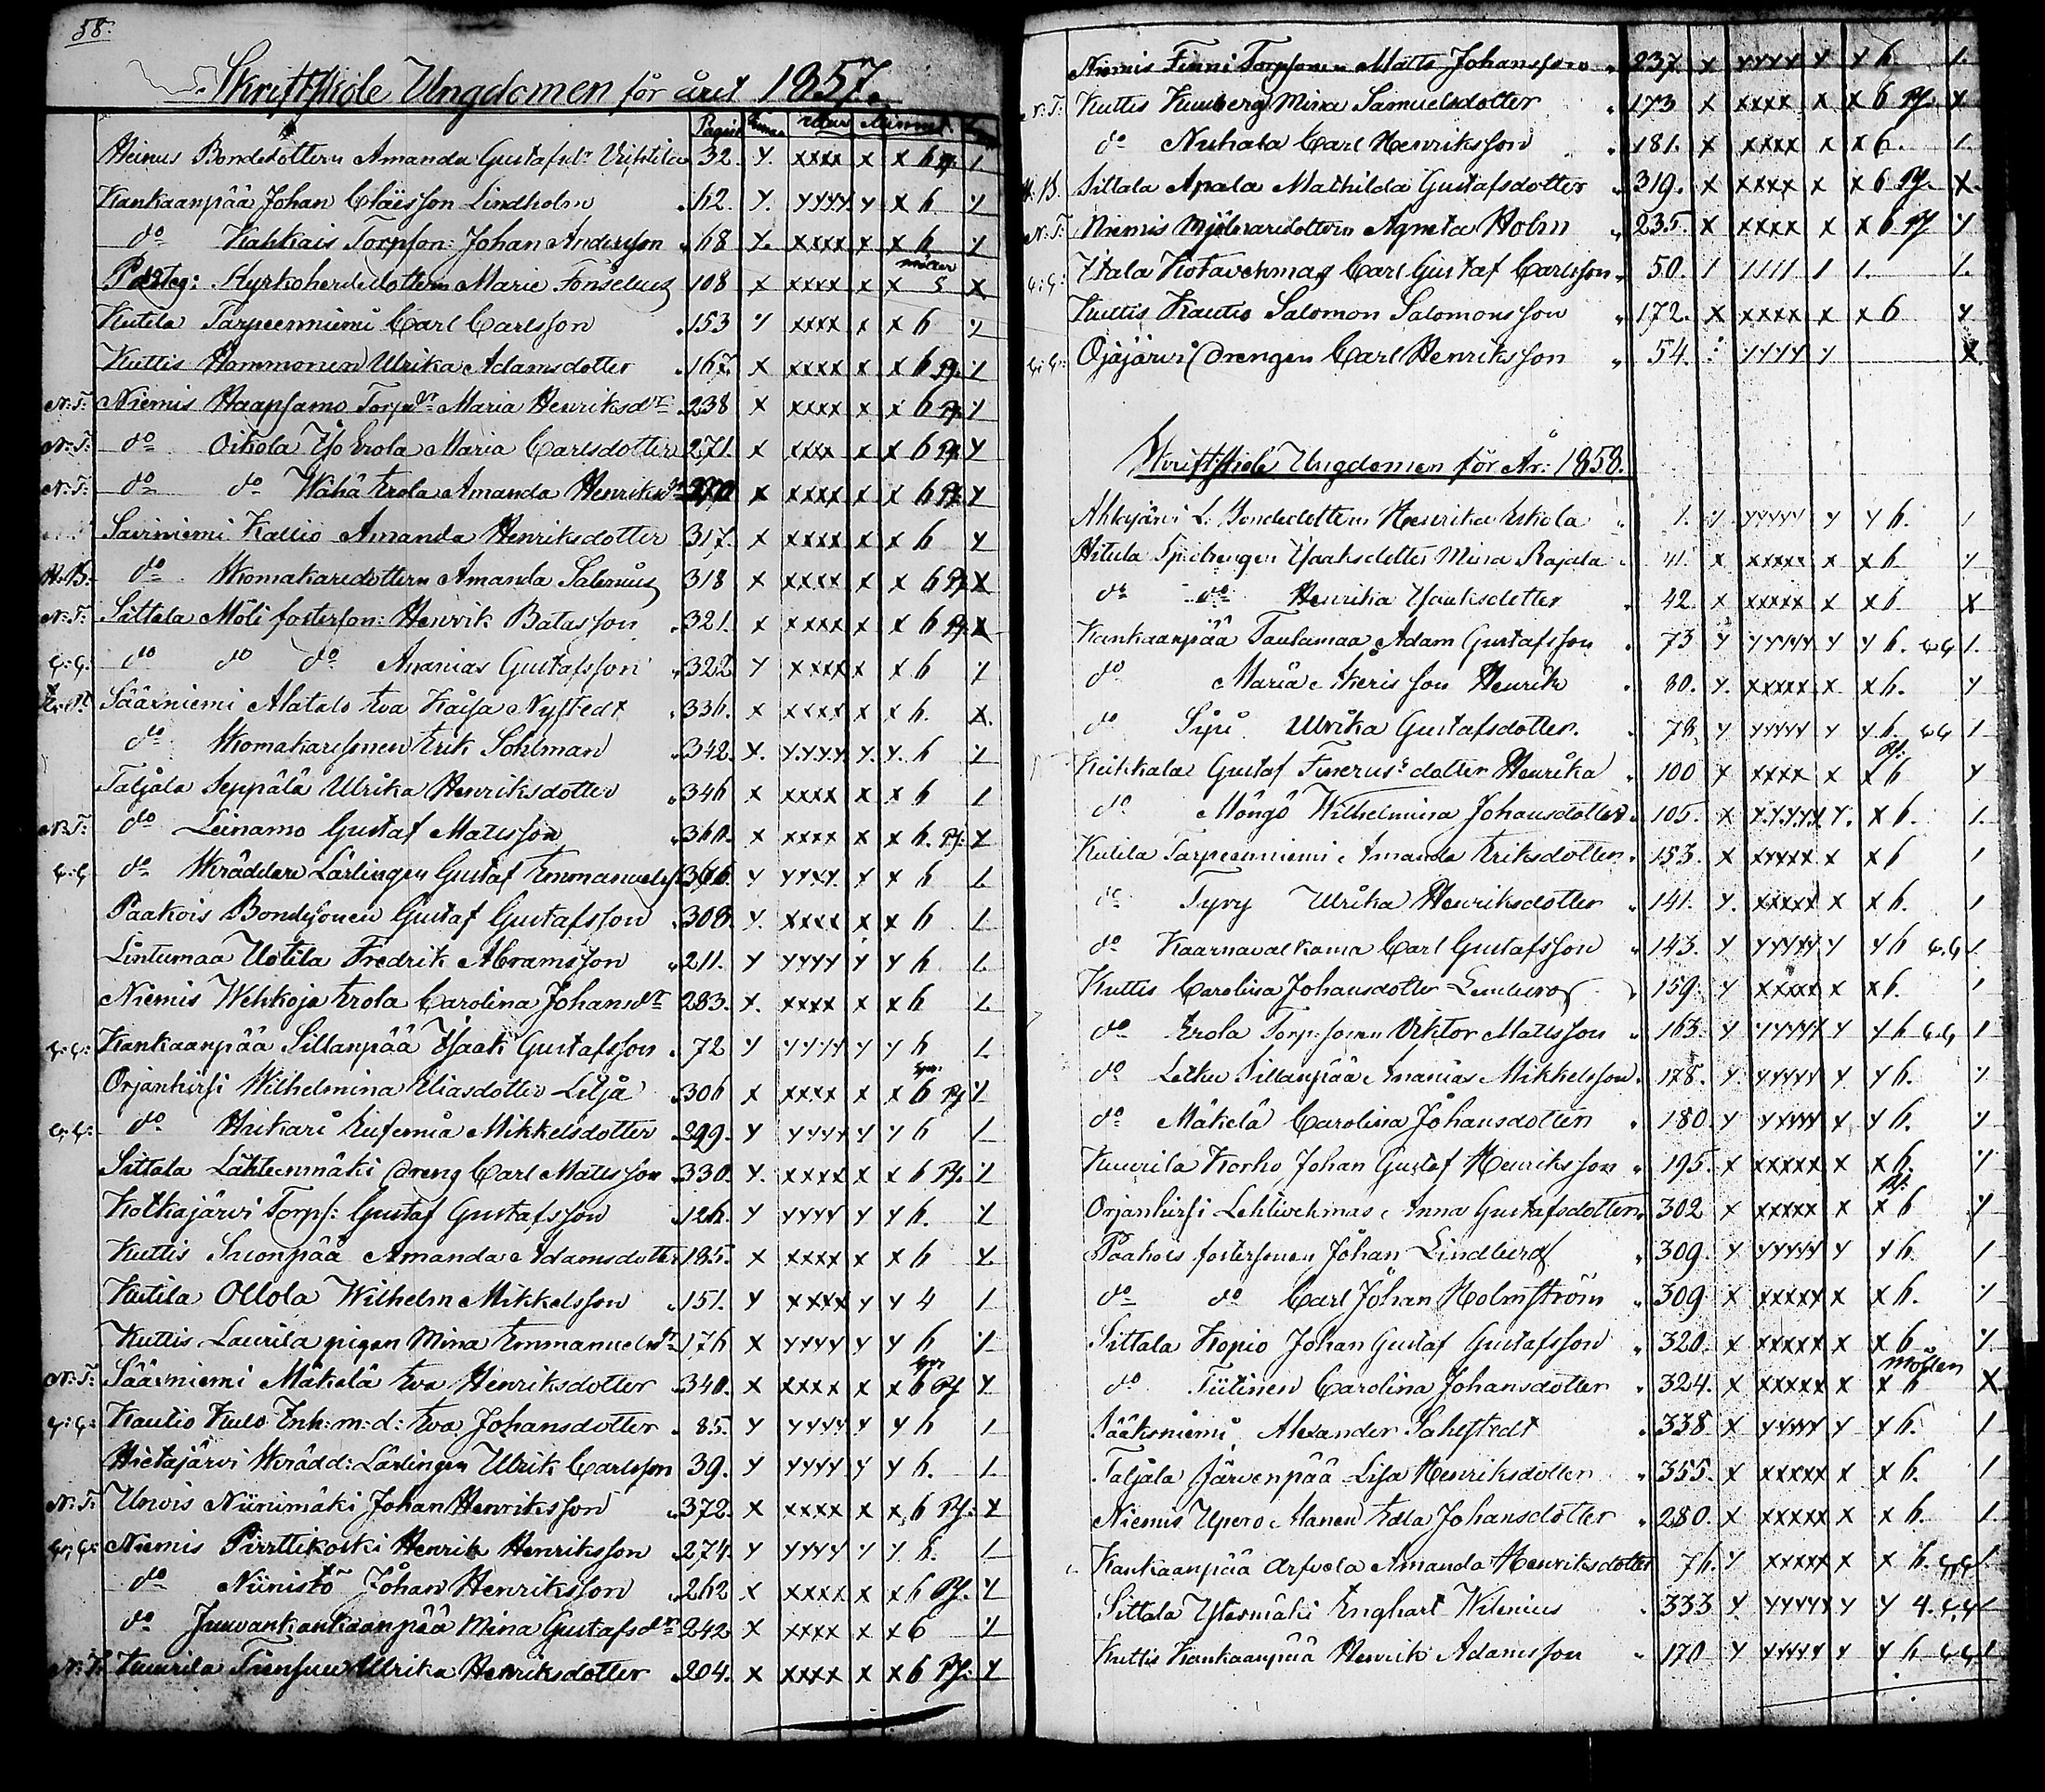 58.
Skriftskole Ungdomen för året 1857.
Pagina utur Minnet
Heinus Bondedottern Amanda Gustafsdr 32. y. xxxx x x 6 1
Kankaanpää Johan Claësson Lindholm 62. y. yyyy y x 6 y
do Kahkais Torpson: Johan Andersson 68 y. xxxx x x 6 y
Kyrkoherdedottern Marie Fonselius 108 x xxxx x x 5 x
Kutila Tarpeenniemi Carl Carlsson 153 y xxxx x x 6 y
Kuttis Hommonen Ulrika Adamsdotter 167. x xxxx x x 6 Pf. y
N: T: Niemis Haapsamo Torpdr Maria Henriksdr 238 x xxxx x x 6 Pf. y
N: T: do Oikola Yso Erola Maria Carlsdotter 271. x xxxx x x 6 Pf y
N: T: do do Wähä Erola Amanda Henriksdr x xxxx x x 6 Pf y
Sairniemi Kallio Amanda Henriksdotter 317. x xxxx x x 6 y
do Skomakaredottern Amanda Salenius 318 x xxxx x x 6 Pf x
N: T: Sittala Möli fosterson: Henrik Batasson 321. x xxxx x x 6 Pf x
G: G: do do do Ananias Gustafsson 322 y xxxx x x 6 y
Säärniemi Alatalo Eva Kaisa Nystedt 336. x xxxx x x 6. x.
do Skomakaresonen Erik Sohlman 342. x. y.y.y.y. y. y. 6 y
Taljala Seppälä Ulrika Henriksdotter 346 x xxxx x x 6 1
N: T: do Leinamo Gustaf Mattsson 360. x xxxx x x 6. Pf: y
G: G do Skräddare Lärlingen Gustaf Emmanuelss 366. y yyyy. y x 6 1.
Paakois Bondesonen Gustaf Gustafsson 308. y. xxxx x x 6 1
Lintumaa Uotila Fredrik Abramsson 211. y yyyy y y 6 1.
Niemis Wehkoja Erola Carolina Johansdr 283. x. xxxx x x 6 1.
G: G: Kankaanpää Sillanpää Isaak Gustafsson 72 y yyyy y y 6 1.
Orjanhirsi Wilhelmina Eliasdotter Lilja 306 x xxxx x x 6 Pf y
G: G: do Huikari Eufemia Mikkelsdotter 299. y yyyy y y 6 1
Sittala Lähteenmäki dreng Carl Mattsson 330. y. xxxx x x 6 Pf. y
Kolkajärvi Torps: Gustaf Gustafsson 126. y yyyy y y 6. y
Kuttis Suonpää Amanda Adamsdotter 185. x xxxx x x 6 y.
Kutila Ollola Wilhelm Mikkelsson 151. y xxxx y y 4 1
Kuttis Laurila pigan Mina Emmanuelsdr 176 x yyyy y y 6 y
N: T: Säärniemi Mäkelä Eva Henriksdotter 340. x xxxx x x 6 Pf y
G: G: Kautio Kulo Enk: m: d: Eva Johansdotter 85. y yyyy y y 6 1
Hietajärvi Skrädd: Lärlingen Ulrik Carlsson 39. y yyyy y y 6. 1.
N: T: Urvois Niinimäki Johan Henriksson 372. x xxxx x x 6 Pf: x
G: G: Niemis Pirttikoski Henrik Henriksson 274. y yyyy y y 6. 1
do Niinistö Johan Henriksson 262 x xxxx x x 6 Pf. y
do Juuvankankaanpää Mina Gustafsdr 242 x xxxx x x 6 y
N: T: Kuurila Tienfuu Ulrika Henriksdotter 204. x xxxx x x 6 Pf: y
Niemis Finni Torpsonen Matts Johansson 237. x yyyy y y 6. 1.
N: T: Kuttis Kunberg Mina Samuelsdotter 173 x xxxx x x 6 Pf. x
do Nuhala Carl Henriksson 181. x xxxx x x 6. 1.
N. B. Sittala Apala Mathilda Gustafsdotter 319. x xxxx x x 6 Pf. x.
N: T: Niemis Mjölnaredottern Agneta Holm 235. x xxxx x x 6 Pf y
G: G: Itala Kotavehmas Carl Gustaf Carlsson 50. 1 1111 1 1. 1.
Kuttis Kautio Salomon Salomonsson 172. x xxxx x x 6 y
G: G: Ojajärvi drengen Carl Henriksson 54. yyyy y x.
Skriftskole Ungdomen för År: 1858.
Ahlajärvi L. Bondedottern Henrika Eskola 1. y. yyyyy y y 6. 1
Hitula Isaksdotter Mina Rajala 41. x xxxxx x x 6 y
do do Henrika Isaaksdotter 42. x xxxxx x x 6 x
Kankaanpää Taulamaa Adam Gustafsson 73 y yyyyy y y 6. GG 1.
do Maria Akeris son Henrik 80. y. xxxxx x x 6. y
do Sipi Ulrika Gustafsdotter. 78. y yyyyy y y 6. GG 1
Keikkala Gustaf dotter Henrika 100 y xxxx x x 6 Pf: y
do Möngö Wilhelmina Johansdotter 105. x y.y.y.y.y y. x 6. 1.
Kutila Tarpeenniemi Amanda Eriksdotter 153. x xxxxx x x 6 1
do Tyry Ulrika Henriksdotter 141. y. xxxxx x x 6. 1
do Kaarnavalkama Carl Gustafsson 143. y yyyyy y y 6 G.G 1
Kuttis Carolina Johansdotter Lemberg 159. y xxxxx x x 6. 1
do Erola Torp: sonen Viktor Mattsson 163. y yyyyy y y 6 GG 1
do Letku Sillanpää Ananias Mikkelsson 178. y yyyyy y y 6. y
do Mäkelä Carolina Johansdotter 180. y yyyyy y y 6. y
Kuurila Korho Johan Gustaf Henriksson 195. x xxxxx x x 6. y
Orjanhirsi Lehtivehmas Anna Gustafsdotter 302 x xxxxx x x 6 Pf: y
Paakois fostersonen Johan Lindberg 309. y yyyyy y y 6. 1
do do Carl Johan Holmström 309 x xxxxx x x 6. y
Sittala Kopio Johan Gustaf Gustafsson 320. x xxxxx x x 6 y.
do Tiitinen Carolina Johansdotter 324. x xxxxx x x 6 x
Jääksniemi Alexander Sahlstedt 338 x yyyyy y y 6. 1
Taljala Järvenpää Lisa Henriksdotter 355. x xxxxx x x 6. 1
Niemis Upero Manen Edla Johansdotter 280. x xxxxx x x 6. 1.
Kankaanpää Arfvela Amanda Henriksdotter 76. y xxxxx x x 6. GG 1.
Sittala Yltasmäki Enghart Wilenius 333 y. yyyyy y y 4. GG 1
Kuttis Kankaanpää Henrik Adamsson 170 y yyyyy y y 6 GG 1